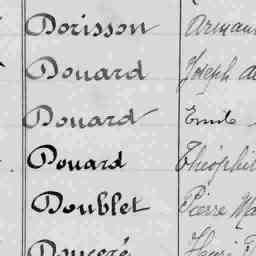 Dorisson Arman
Douard Joseph
Douard Emile
Douard Théophil
Doublet Pierre Ma
Douceré Henri